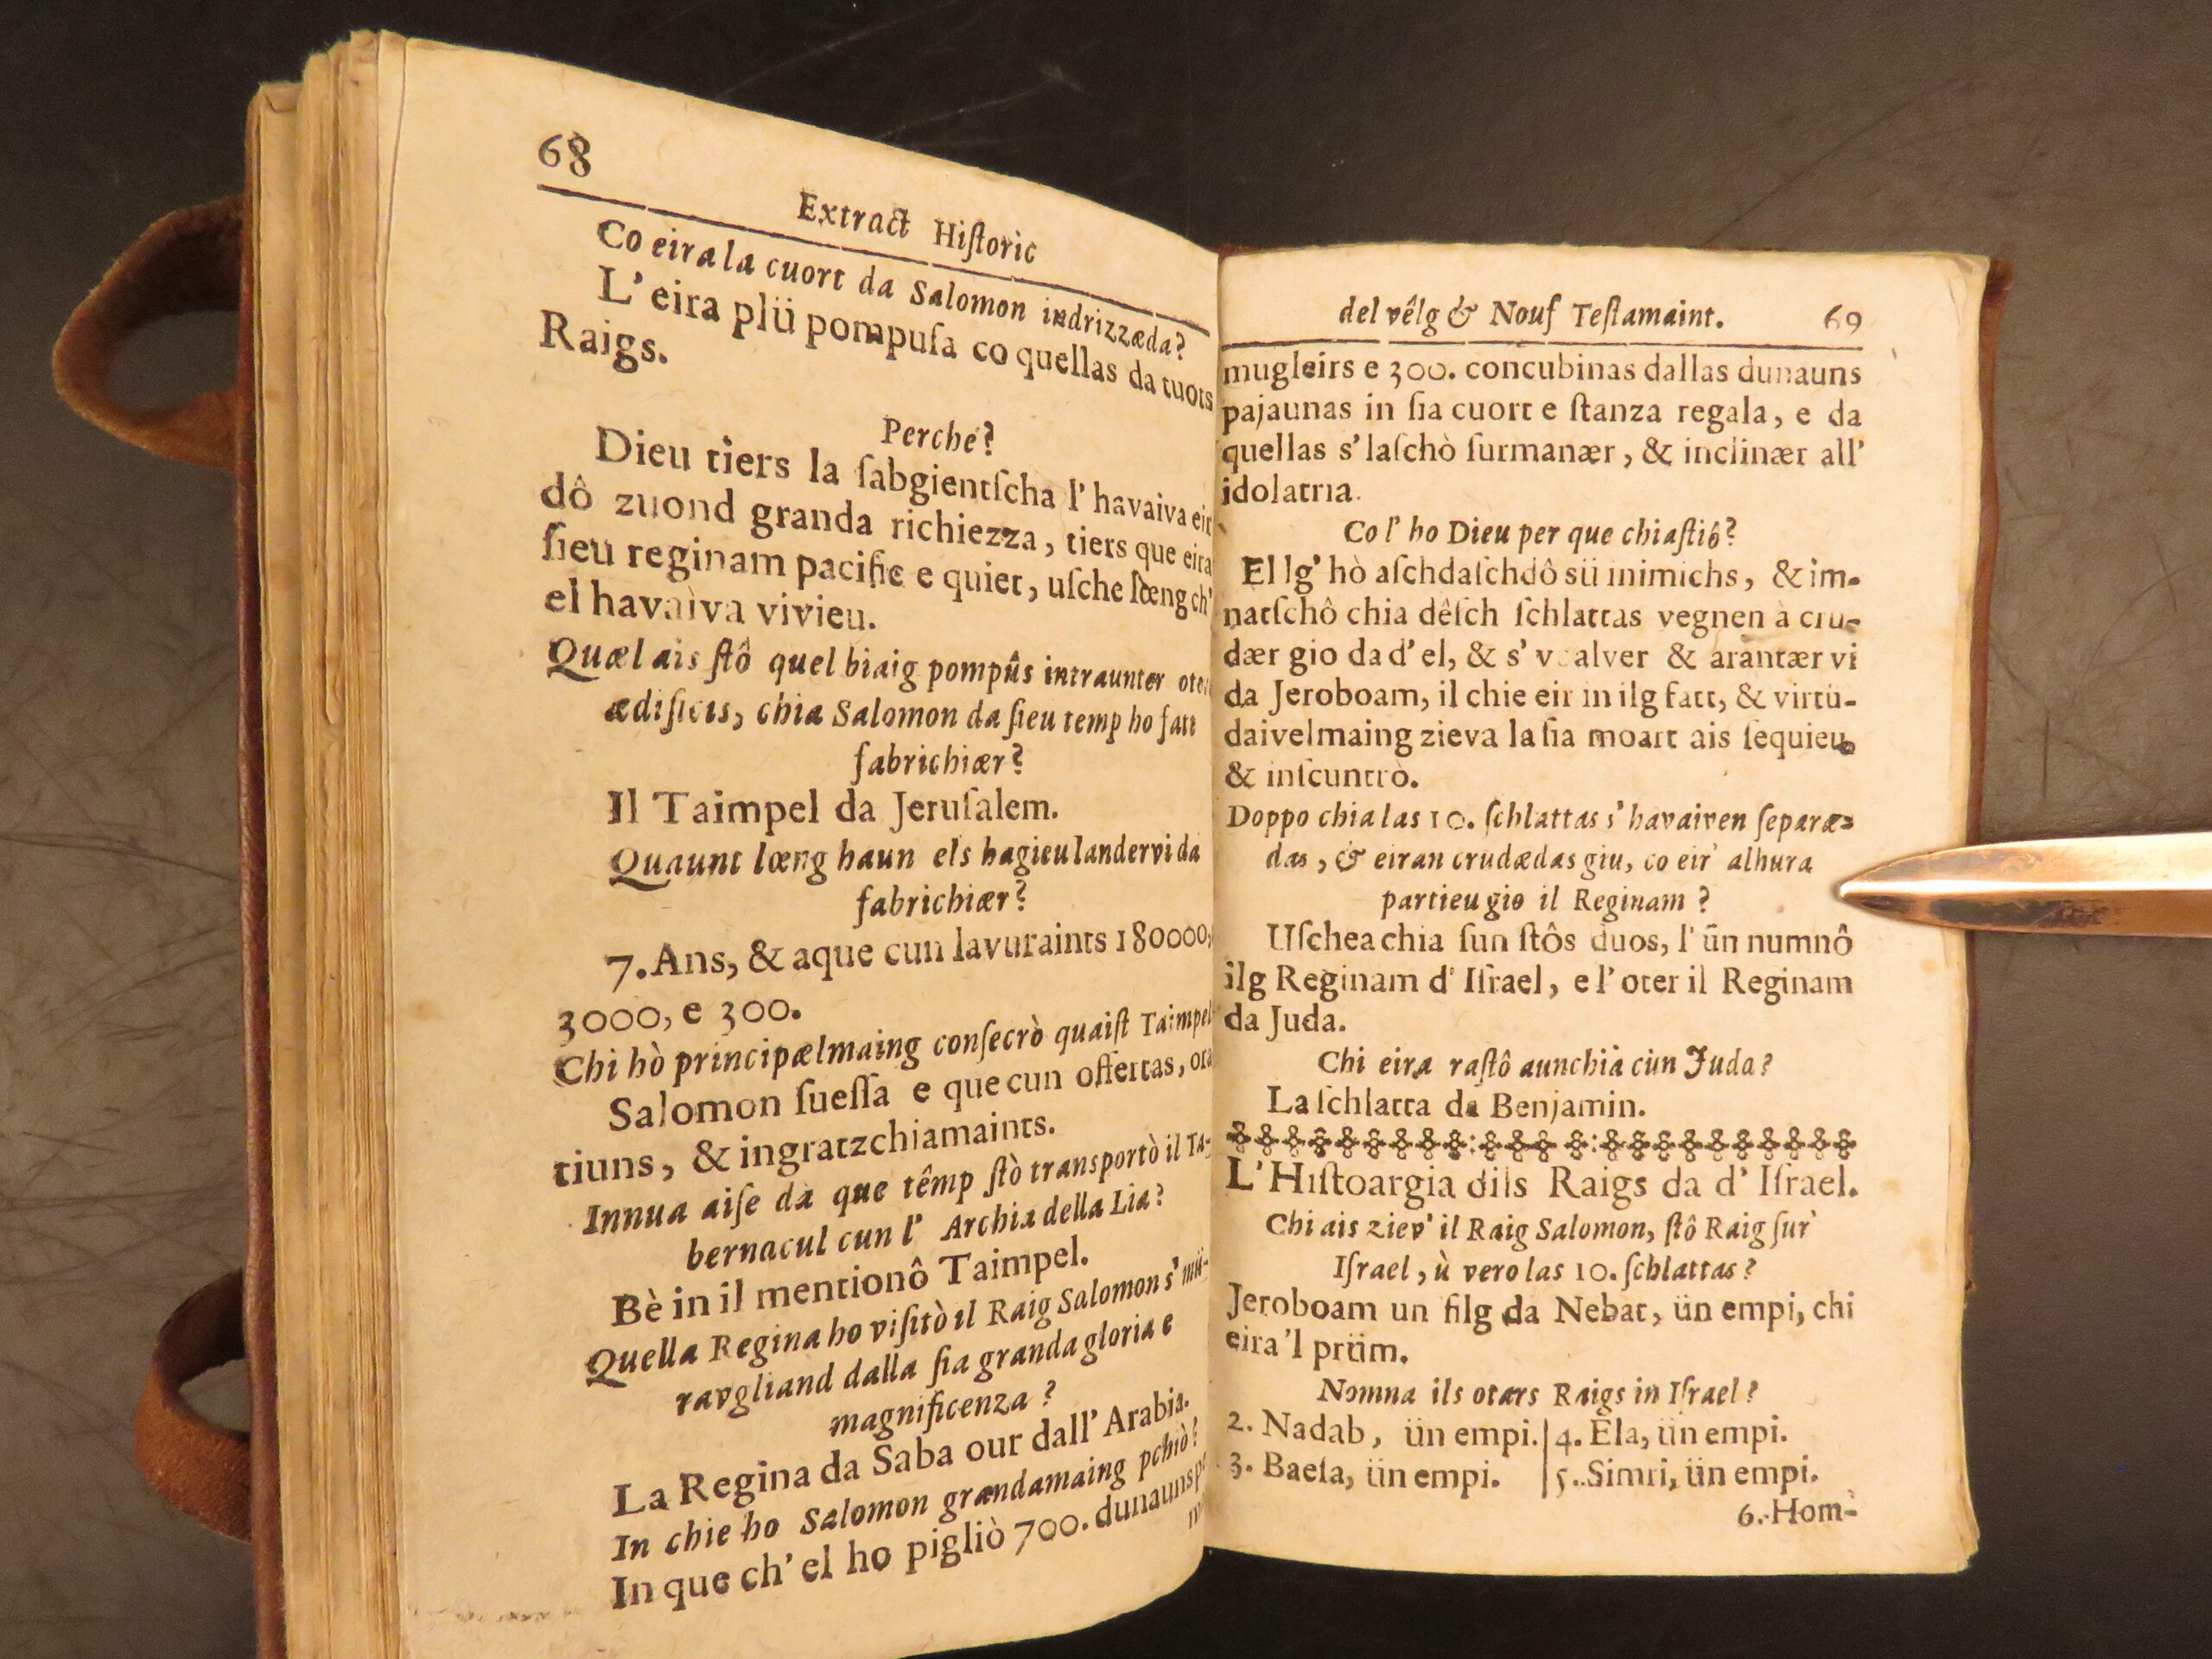 68
Extract Hiſtoric
Co eira la cuort da Salomon indrizzæda?
L' eira plü pompuſa co quellas da tuots
Raigs.
Perche?
Dieu tiers la ſabgientſcha l' havaiva eir
dô zuond granda richiezza, tiers que eira
ſieu reginam pacific e quiet, uſche lœng ch'
el havaiva vivieu.
Quæl ais ſtô quel biaig pompûs intraunter
ædificis, chia Salomon da ſieu temp ho fatt
fabrichiær?
Il Taimpel da Jeruſalem.
Quaunt lœng haun els hagieu landervi da
fabrichiær?
7. Ans, & aque cun lavuraints 180000,
3000, e 300.
Chi hò principælmaing conſecrò quaiſt Taimpel
Salomon ſueſſa e que cun offertas,
tiuns, & ingratzchiamaints.
Innua aiſe da que têmp ſtò transportò il Ta-
bernacul cun l' Archia della Lia?
Bè in il mentionô Taimpel.
Quella Regina ho viſitò il Raig Salomon s' mü-
ravgliand dalla ſia granda gloria e
magnificenza?
La Regina da Saba our dall' Arabia.
In chie ho Salomon grandamaing pchiò?
In que ch' el ho pigliò 700. dunauns
del vêlg & Nouf Teſtamaint. 69
mugleirs e 300. concubinas dallas dunauns
pajaunas in ſia cuort e ſtanza regala, e da
quellas s' laſchò ſurmanær, & inclinær all'
idolatria.
Co l' ho Dieu per que chiaſtiô?
El lg' hò aſchdaſchdô sü inimichs, & im-
natſchô chia dêſch ſchlattas vegnen à cru-
dær gio da d' el, & s' alver & arantær vi
da Jeroboam, il chie eir in ilg fatt, & virtü-
daivelmaing zieva la ſia moart ais ſequieu,
& inſcuntrò.
Doppo chia las 10. ſchlattas s' havaiven ſeparæ-
das, & eiran crudædas giu, co eir' alhura
partieu gio il Reginam?
Uſchea chia ſun ſtôs duos, l' ün numnô
ilg Reginam d' Iſrael, e l' oter il Reginam
da Juda.
Chi eira raſtô aunchia cùn Juda?
La ſchlatta da Benjamin.
L' Hiſtoargia dils Raigs da d' Iſrael.
Chi ais ziev' il Raig Salomon, ſtô Raig ſur'
Iſrael, ù vero las 10. ſchlattas?
Jeroboam un filg da Nebat, ün empi, chi
eira 'l prüm.
Nomna ils otars Raigs in Iſrael?
2. Nadab, ün empi. | 4. Ela, ün empi.
3. Baeſa, ün empi. | 5. Simri, ün empi.
6. Hom-